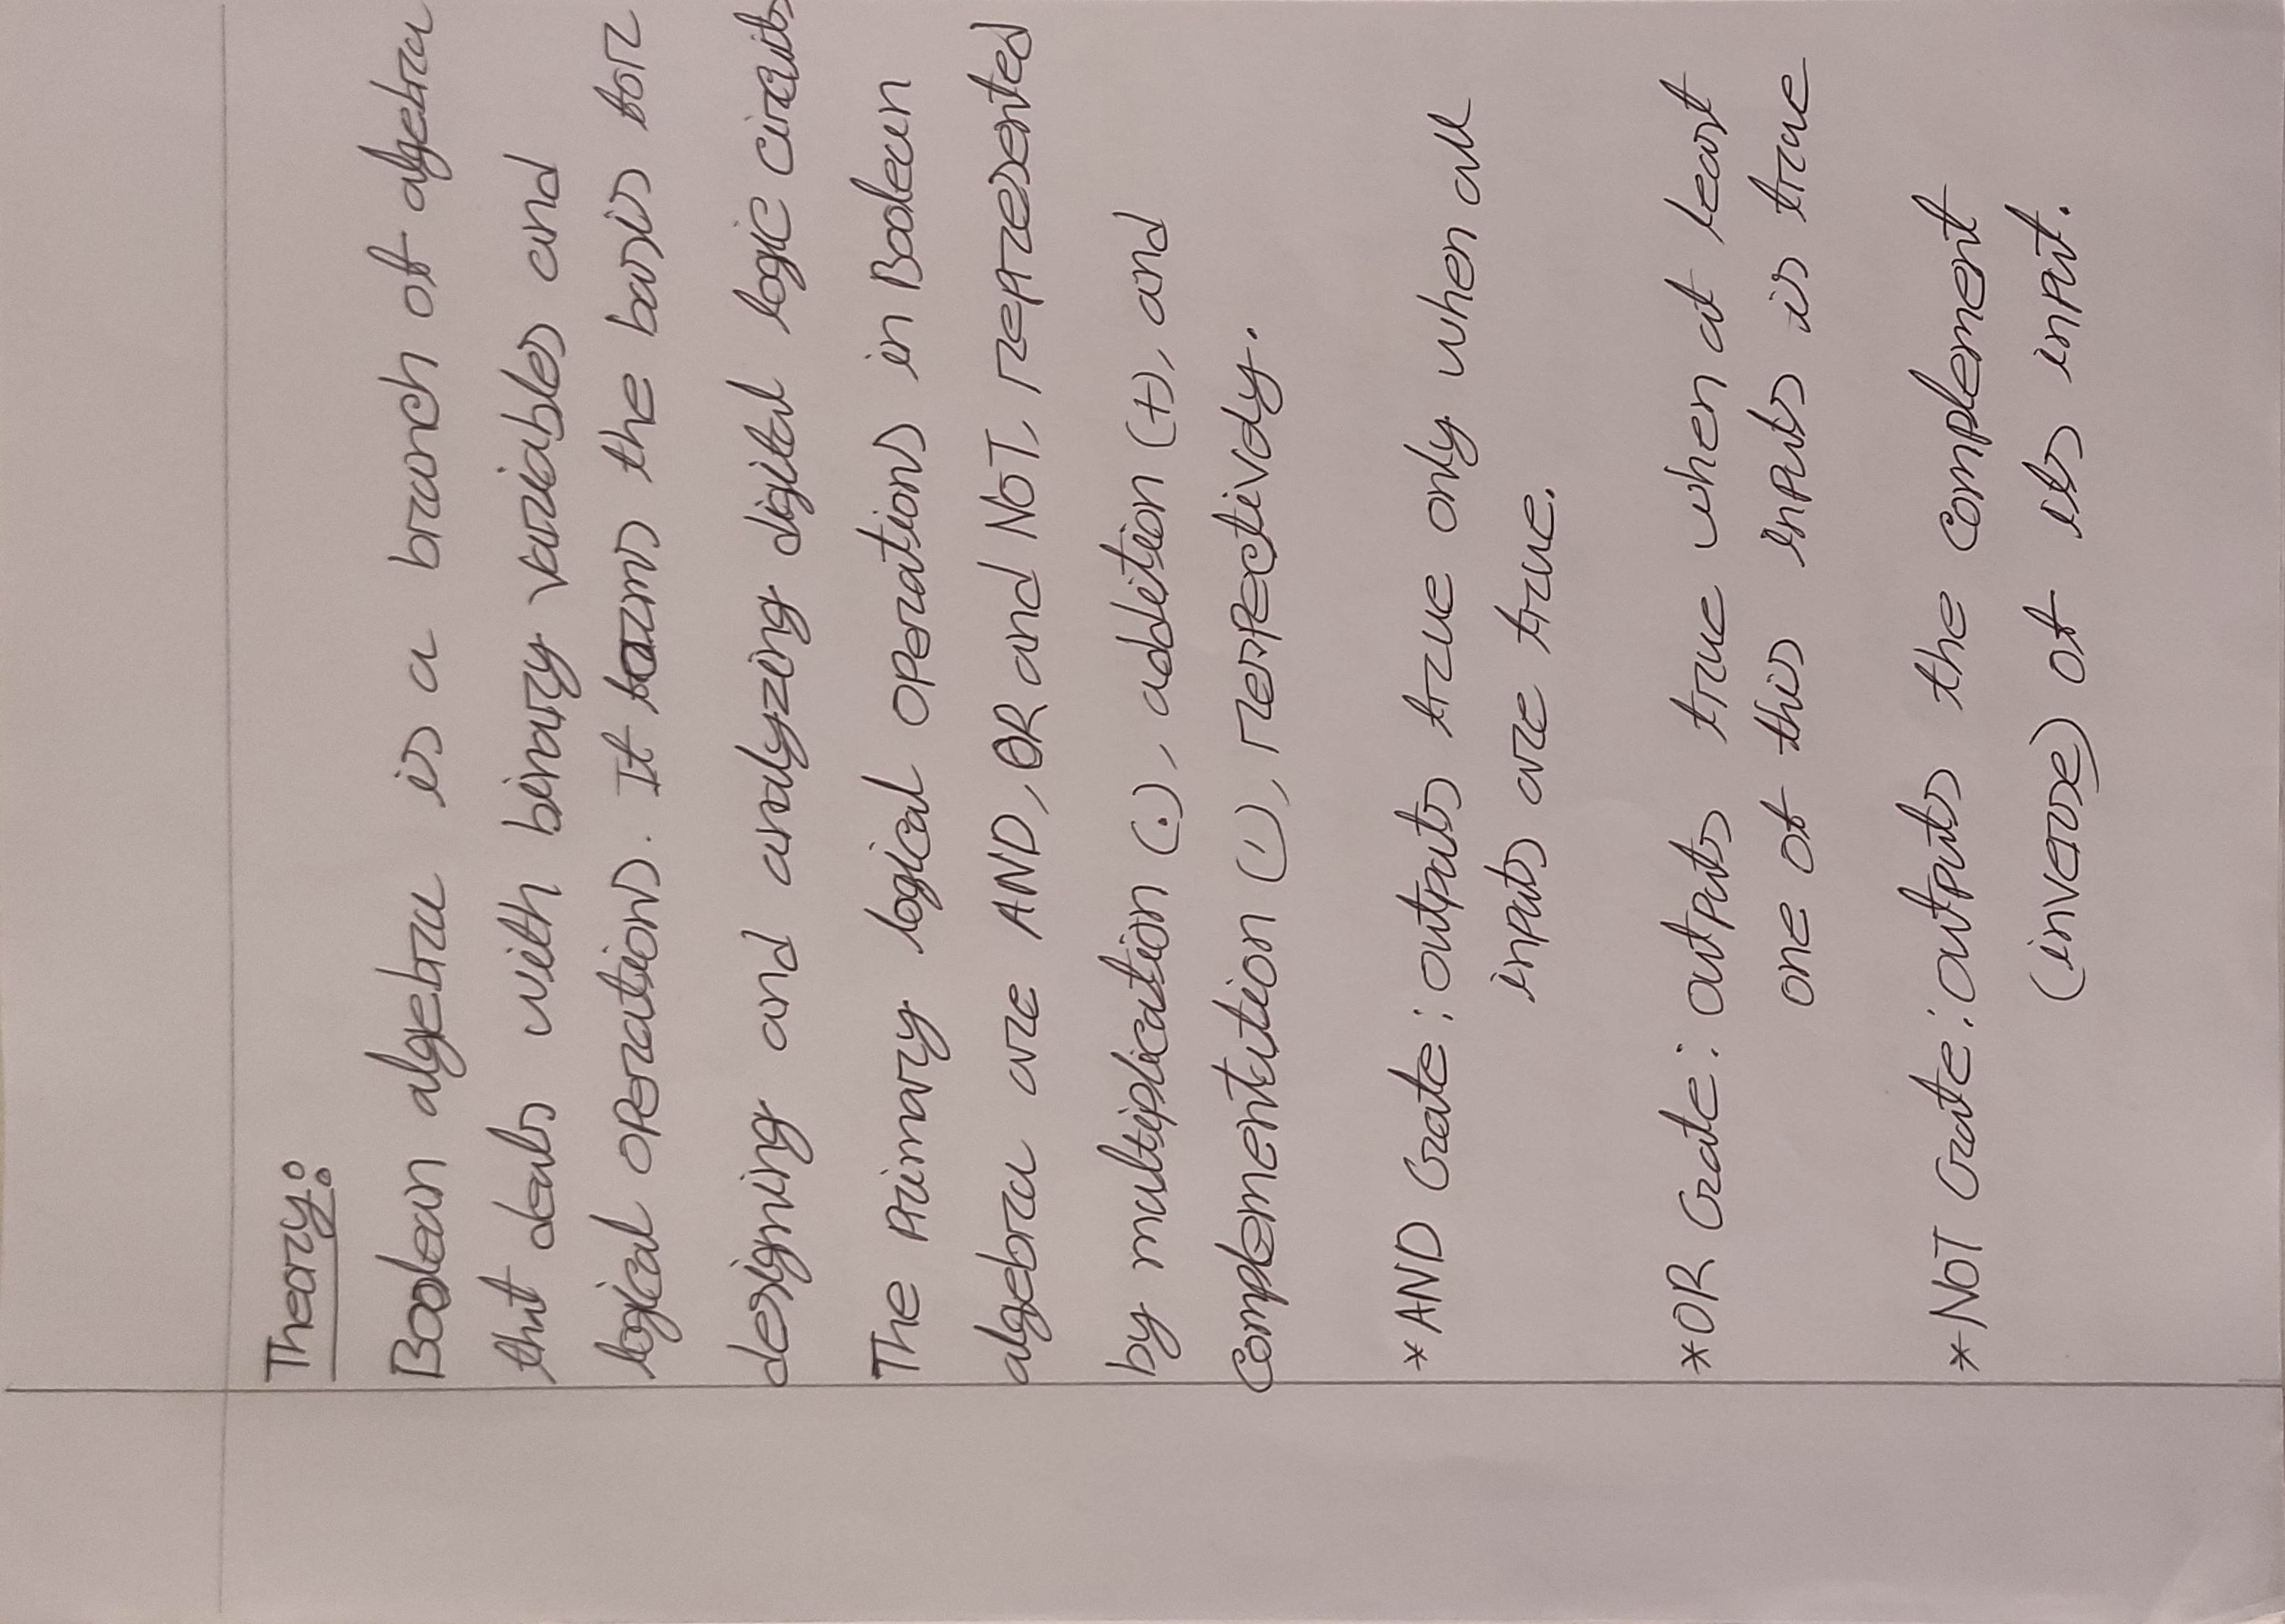 Theory:
Boolean algebra is a branch of algebra
that deals with binary variables and
logical operations. It forms the basis for
designing and analyzing digital logic circuits
The primary logical operations in Boolean
algebra are AND, OR and NOT, represented
by multiplication (.), addition (+), and
complementation ('), respectively.
*AND Gate: outputs true only when all
inputs are true.
*OR Gate: outputs true when at least
one of this inputs is true
*NOT Gate: outputs the complement
(inverse) of its input.